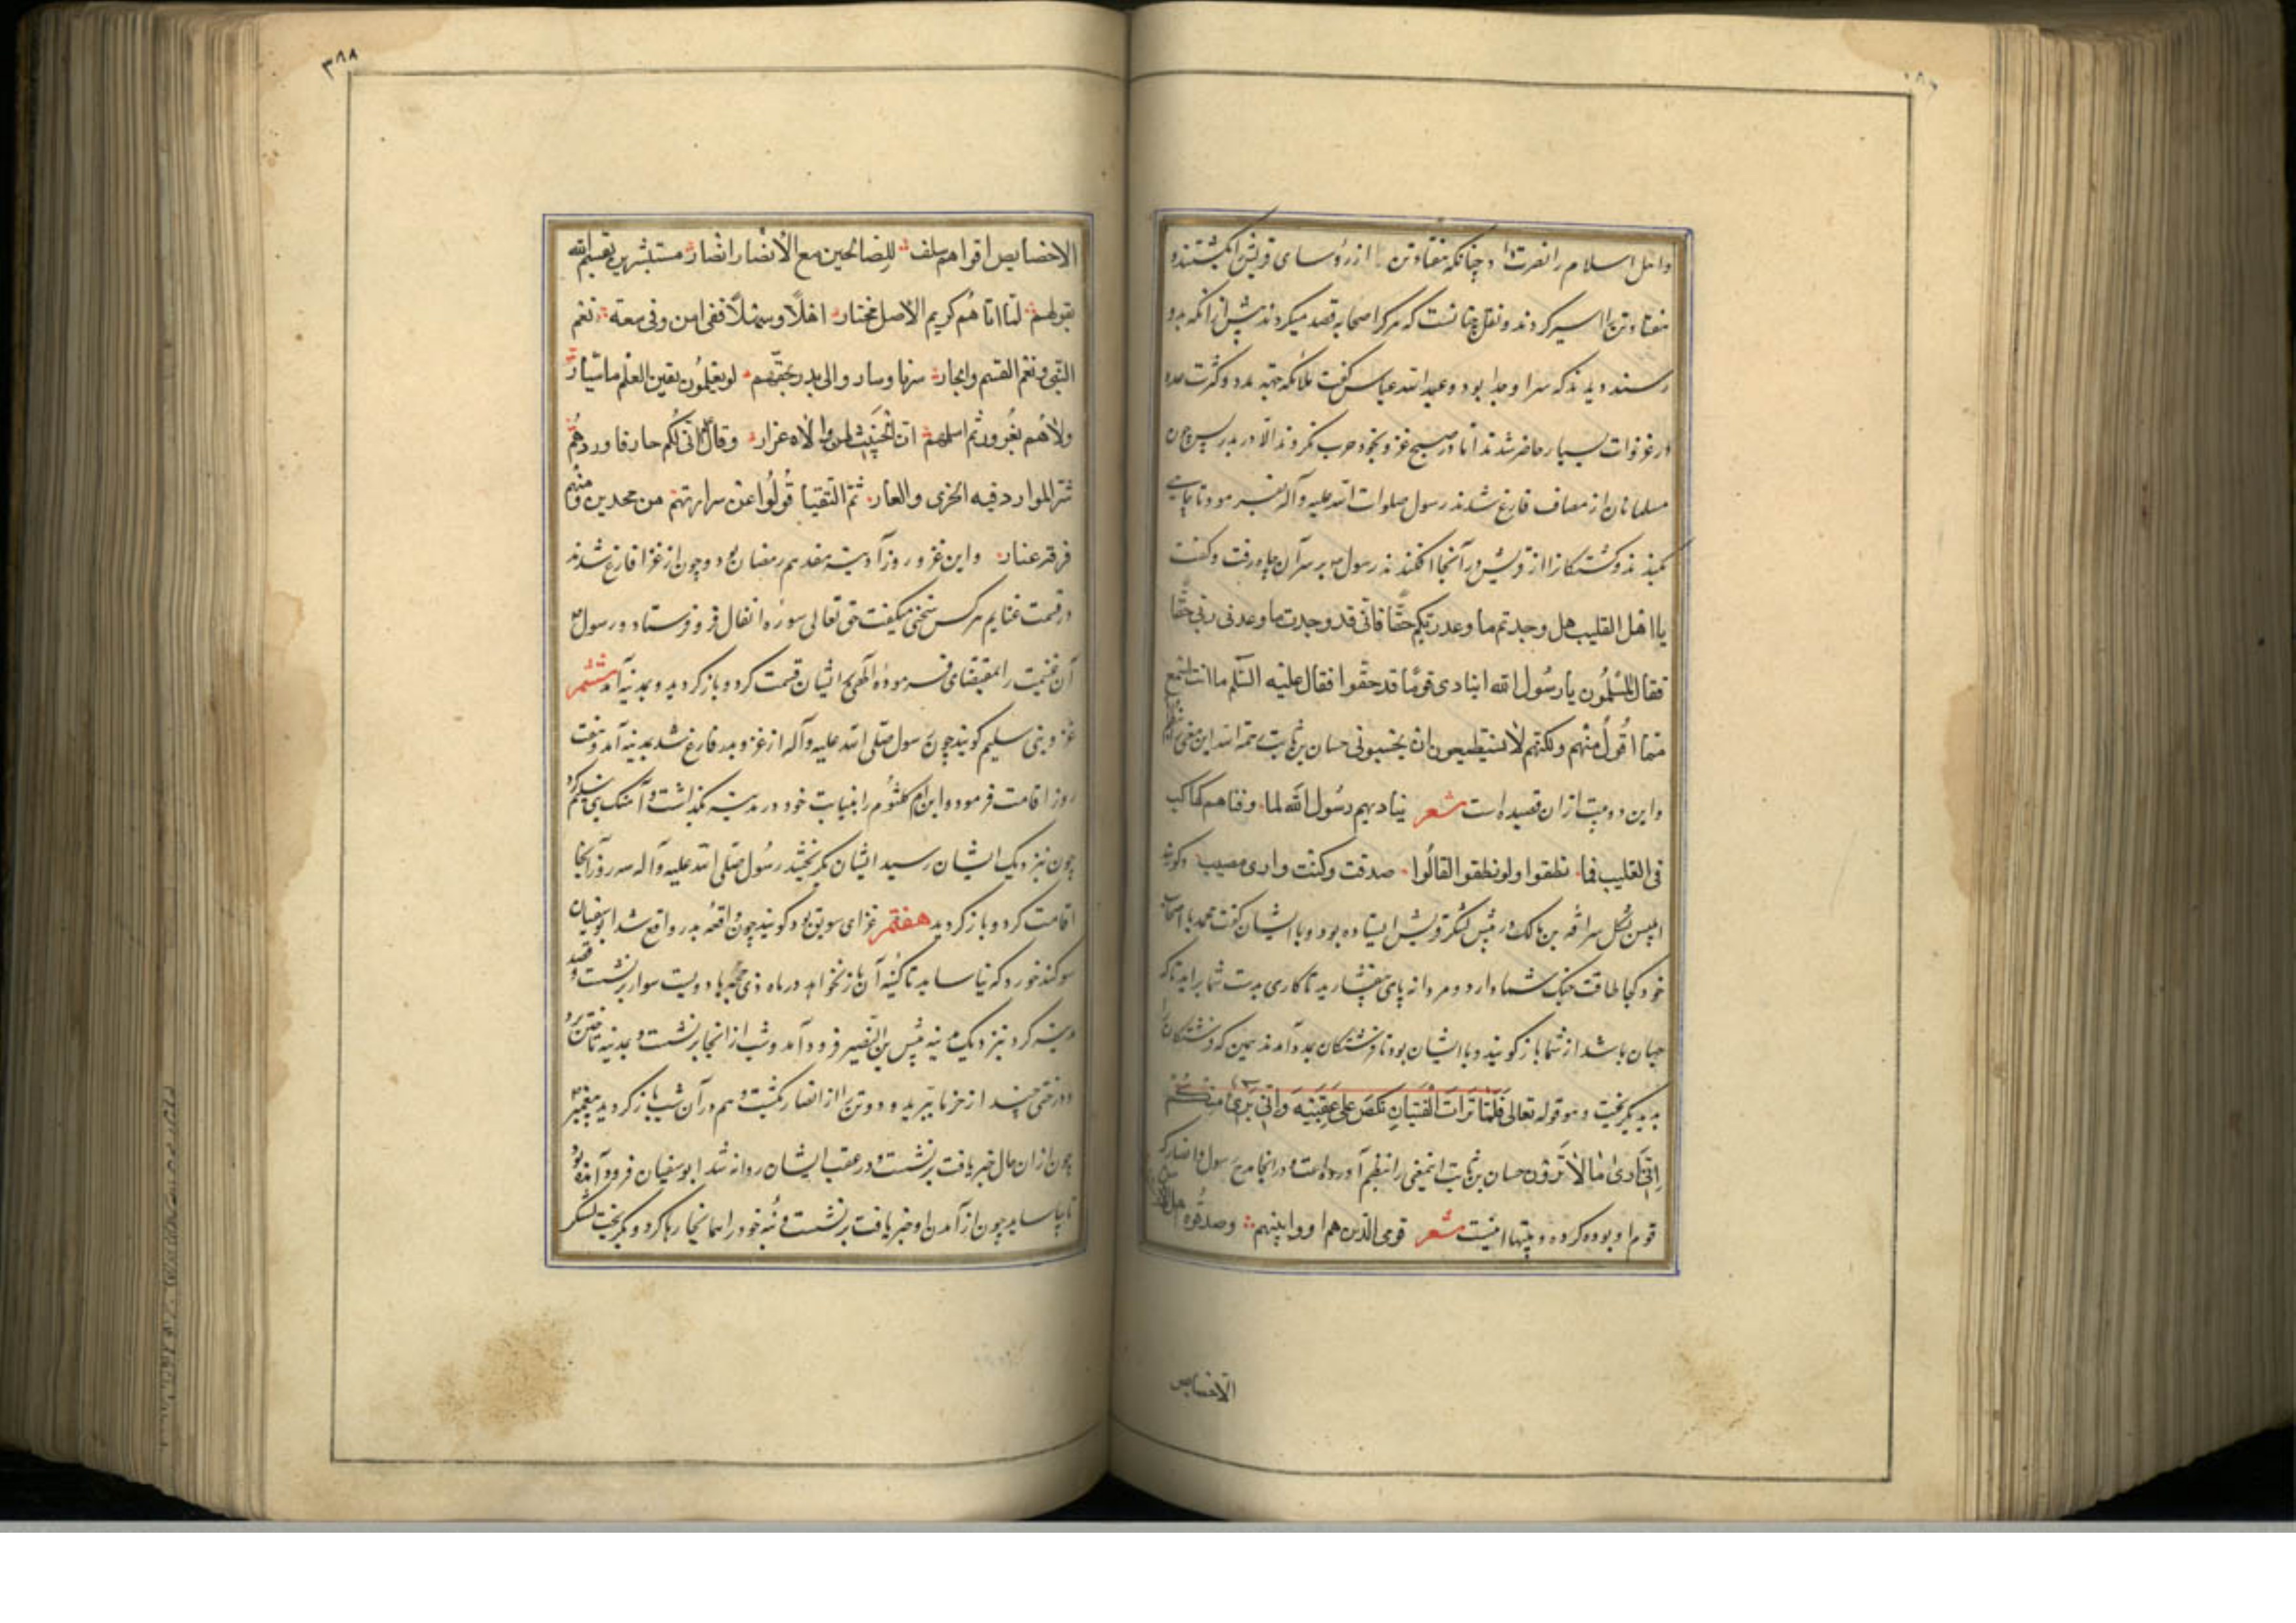 واهل اسلام را نصرت داد چنانکه هفتاد تن را از رؤسای قریش بکشتند و
هفتاد تن را اسیر کردند و نقل چنانست که هر کرا صحابه قصد میکردند پیش از آنکه بدو
رسند دیدند که سر او جدا بود و عبدالله عباس گفت ملائکه جهة مدد و کثرت عدد
در غزوات بسیار حاضر شدند اما در هیچ غزو بخود حرب نکردند الا در بدر پس چون
مسلمانان از مصاف فارغ شدند رسول صلوات الله علیه و آله بفرمود تا چاهی
بکندند و کشتکانرا از قریش در آنجا افکندند رسول بر سر آن چاه رفت و کفت
یا اهل القلیب هل وجدتم ما وعد ربکم حقا فانی قد وجدت ما وعدنی ربی حقا
فقال المسلمون یا رسول الله اتنادی قوما قد جیفوا فقال علیه السلم ما انت باسمع
مما اقول منهم ولکنهم لا یستطیعون ان یجیبونی حسان بن ثابت رحمه الله این معنی
واین دو بیت از ان قصیده است شعر ینادیهم رسول الله لما قذفناهم کباکب
فی القلیب فما نطقوا ولو نطقوا لقالوا صدقت وکنت ذا رای مصیب و کویند
ابلیس بشکل سراقه بن مالک در پیش لشکر قریش ایستاده بود و با ایشان کفت محمد با اصحاب
خود کجا طاقت جنک شما دارد و مردانه پای بیفشارید تا کاری بدست شما براید که تا
جهان باشد از شما باز کویند و با ایشان بود تا فرشتکان بمدد آمدند همین که فرشتکانرا
بدید بکریخت وهو قوله تعالی فلما تراءت الفئتان نکص علی عقبیه وقال انی بریء منکم
انی اری ما لا ترون حسان بن ثابت این معنی را بنظم آورده است و در انجا مدح رسول و انصار که
قوم او بوده کرده و بیتها اینست شعر قومی الذین هم اووا نبیهم وصدقوه
الاخصایص
٣٨٨
الاخصایص اقوام هم سلف للصالحین مع الانصار انصار مستبشرین بقسم الله
بقولهم لما اتاهم کریم الاصل مختار اهلا وسهلا ففی امن وفی سعة نعم
النبی ونعم القسم والجار سرنا وساروا الی بدر لحینهم لو یعلمون یقین العلم ما ساروا
ولاهم بغرور ثم اسلمهم ان الخبیث لمن والاه غرار وقال انی لکم جار فاوردهم
شر الموارد فیه الخزی والعار ثم التقینا فولوا عن سراتهم من منجدین ومنهم
فرقة غاروا واین غزو روز آدینه هفدهم رمضان بود و چون از غزا فارغ شدند
در قسمت غنایم هر کس سخنی میکفت حق تعالی سوره انفال فرو فرستاد و رسول
آن غنیمت را بمقتضای فرموده الهی بر ایشان قسمت کرد و باز کردید و بمدینه آمد ششم
غزو بنی سلیم کویند چون رسول صلی الله علیه و آله از غزو بدر فارغ شد بمدینه آمد و هفت
روز اقامت فرمود و ابن ام کلثوم را بنیابت خود در مدینه بکذاشت و آهنک بنی سلیم کرد
چون نزدیک ایشان رسید ایشان بکریختند رسول صلی الله علیه و آله سه روز آنجا
اقامت کرد و باز کردید هفتم غزای سویق بود کویند چون واقعه بدر واقع شد ابوسفیان
سوکند خورد که نیاساید تا کینه آن باز نخواهد در ماه ذی حجه با دویست سوار بر نشست و قصد
مدینه کرد نزدیک مدینه پیش بنی النضیر فرود آمد و شب از انجا بر نشست و بمدینه تاختن برد
و درختی چند از خرما ببرید و دو تن را از انصار بکشت و هم در آن شب باز کردید پیغمبر
چون از ان حال خبر یافت بر نشست و در عقب ایشان روانه شد ابوسفیان فرود آمده بود
تا بیاساید چون از آمدن او خبر یافت بر نشست و بنه خود را همانجا رها کرد و بکریخت لشکر